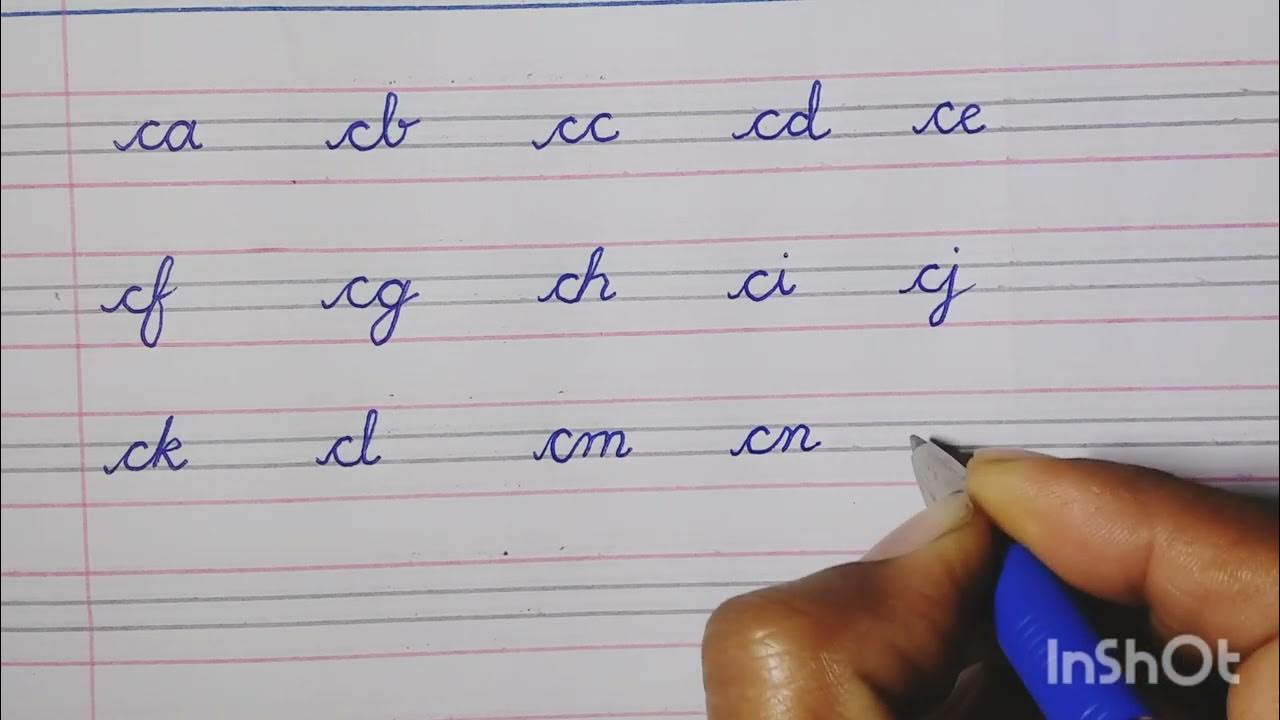 ca cb cc cd ce
cf cg ch ci cj
ck cl cm cn
InShOt